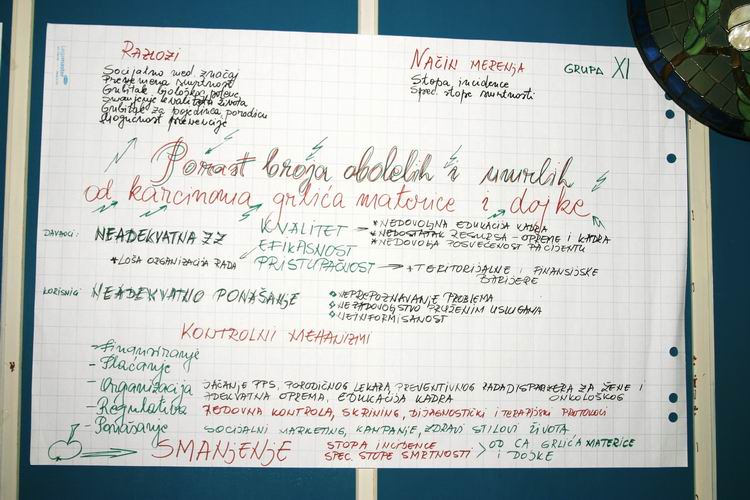 RAZLOZI
Socijalno med. značaj
Prevremena smrtnost
Gubitak biološkog potenc.
Smanjenje kvaliteta života
Gubitak za pojedinca, porodicu
Mogućnost prevencije
NAČIN MERENJA
Stopa incidence
Spec. stope smrtnosti
GRUPA XI
Porast broja obolelih i umrlih
od karcinoma grlića materice i dojke
DAVAOCI: NEADEKVATNA ZZ
* LOŠA ORGANIZACIJA RADA
KVALITET → * NEDOVOLJNA EDUKACIJA KADRA
EFIKASNOST * NEDOSTATAK RESURSA - OPREME I KADRA
* NEDOVOLJA POSVEĆENOST PACIJENTU
PRISTUPAČNOST → * TERITORIJALNE I FINANSIJSKE
BARIJERE
KORISNICI: NEADEKVATNO PONAŠANJE
NEPREPOZNAVANJE PROBLEMA
NEZADOVOLJSTVO PRUŽENIM USLUGAMA
NEINFORMISANOST
KONTROLNI MEHANIZMI
- Finansiranje
- Plaćanje
- Organizacija JAČANJE PPS, PORODIČNOG LEKARA, PREVENTIVNOG RADA DISPANZERA ZA ŽENE I
ADEKVATNA OPREMA, EDUKACIJA KADRA ONKOLOŠKOG
- Regulativa REDOVNA KONTROLA, SKRINING, DIJAGNOSTIČKI I TERAPIJSKI PROTOKOLI
- Ponašanje SOCIJALNI MARKETING, KAMPANJE, ZDRAVI STILOVI ŽIVOTA
SMANJENJE STOPA INCIDENCE > OD CA GRLIĆA MATERICE
SPEC. STOPE SMRTNOSTI I DOJKE